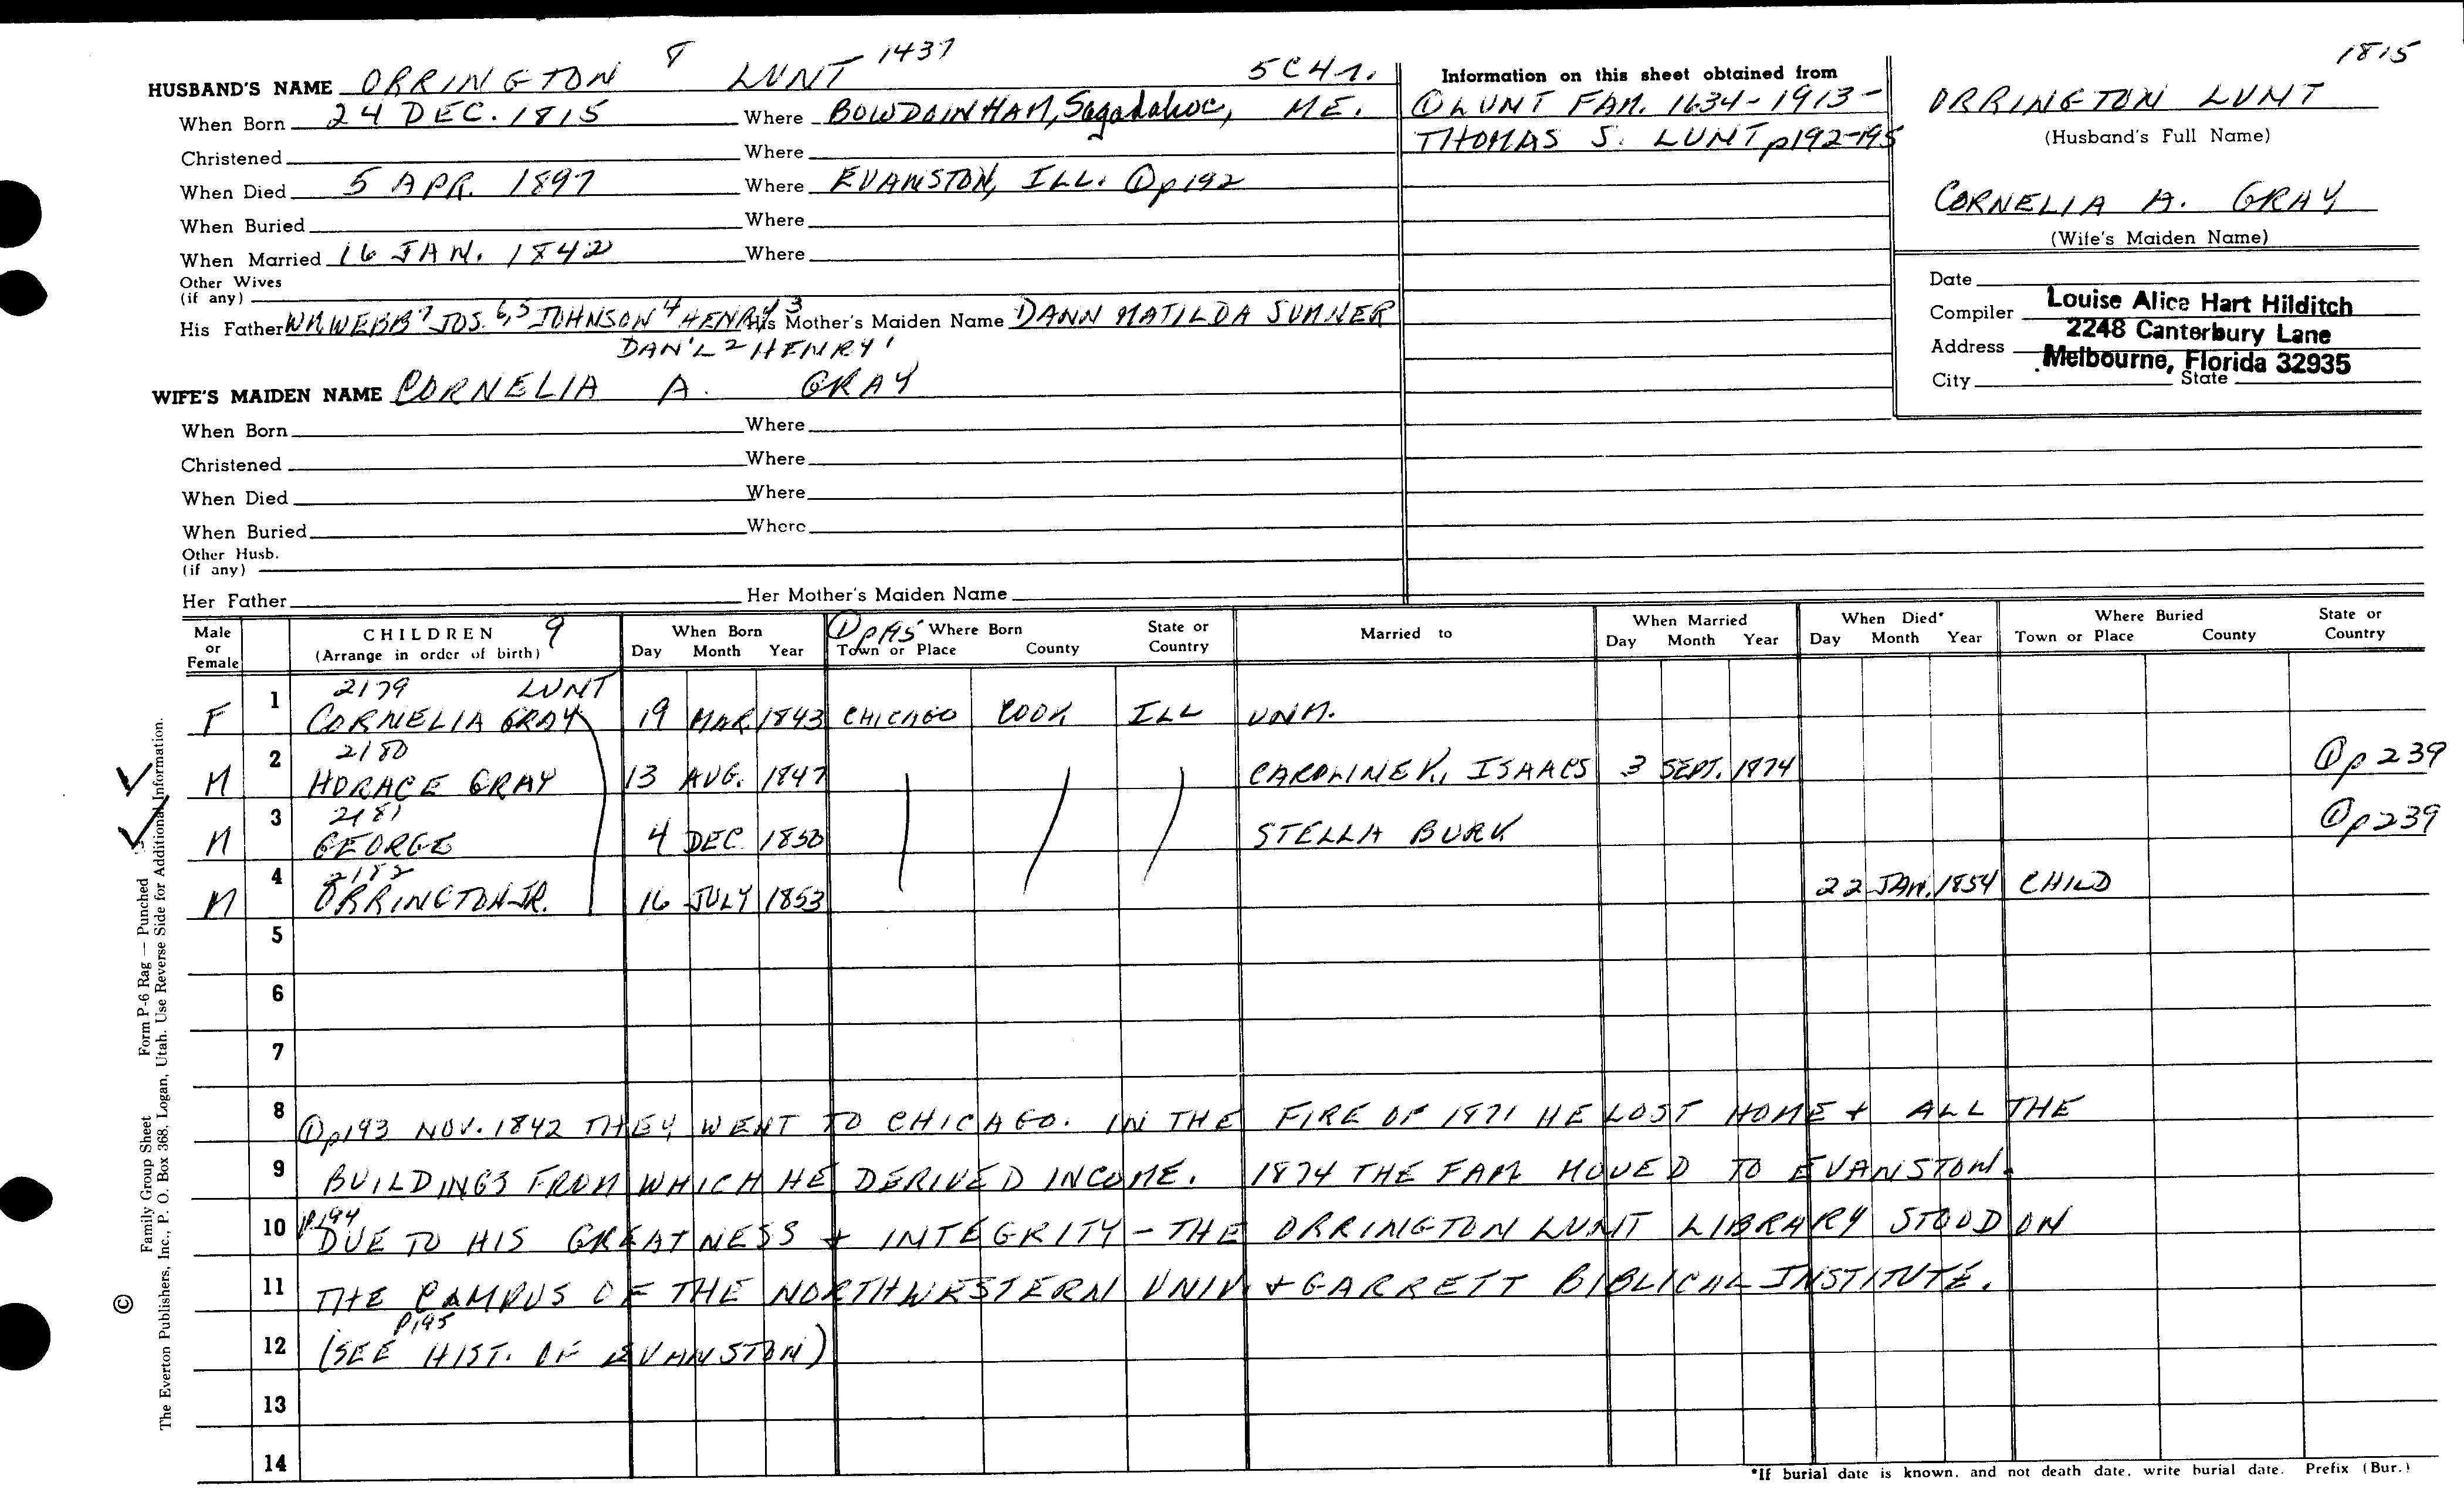 1815
8 1437
HUSBAND'S NAME ORRINGTON LUNT 5C41.
When Born 24 DEC. 1815 Where BOWDOINHAM, Sagadahoc, ME.
Christened Where
When Died 5 APR. 1897 Where EVANSTON, ILL. ① p192
When Buried Where
When Married 16 JAN. 1842 Where
Other Wives
(if any)
His Father WM WEBB 7 JOS. 6,5 JOHNSON 4 HENRY 3 His Mother's Maiden Name DANN MATILDA SUMNER
DAN'L 2 HENRY 1
Information on this sheet obtained from
① LUNT FAM. 1634-1913-
THOMAS S. LUNT p192-195
ORRINGTON LUNT
(Husband's Full Name)
CORNELIA A. GRAY
(Wife's Maiden Name)
Date
Compiler Louise Alice Hart Hilditch
Address 2248 Canterbury Lane
Melbourne, Florida 32935
City State
WIFE'S MAIDEN NAME CORNELIA A. GRAY
When Born Where
Christened Where
When Died Where
When Buried Where
Other Husb.
(if any)
Her Father Her Mother's Maiden Name
Male or Female CHILDREN 9 (Arrange in order of birth) When Born Day Month Year ① p195 Where Born Town or Place County State or Country Married to When Married Day Month Year When Died* Day Month Year Where Buried Town or Place County State or Country
2179 LUNT
F 1 CORNELIA GRAY 19 MAR. 1843 CHICAGO COOK ILL UNM.
2180
M 2 HORACE GRAY 13 AUG. 1847 CAROLINE V. ISAACS 3 SEPT. 1874 ① p239
2181
M 3 GEORGE 4 DEC. 1850 STELLA BURK ① p239
2182
M 4 ORRINGTON JR. 16 JULY 1853 22 JAN. 1854 CHILD
5
6
7
8 ① p193 NOV. 1842 THEY WENT TO CHICAGO. IN THE FIRE OF 1871 HE LOST HOME + ALL THE
9 BUILDINGS FROM WHICH HE DERIVED INCOME. 1874 THE FAM MOVED TO EVANSTON.
10 p.194 DUE TO HIS GREATNESS + INTEGRITY - THE ORRINGTON LUNT LIBRARY STOOD ON
11 THE CAMPUS OF THE NORTHWESTERN UNIV. + GARRETT BIBLICAL INSTITUTE.
p195
12 (SEE HIST. OF EVANSTON)
13
14
*If burial date is known, and not death date, write burial date. Prefix (Bur.)
© Family Group Sheet Form P-6 Rag — Punched
The Everton Publishers, Inc., P. O. Box 368, Logan, Utah. Use Reverse Side for Additional Information.